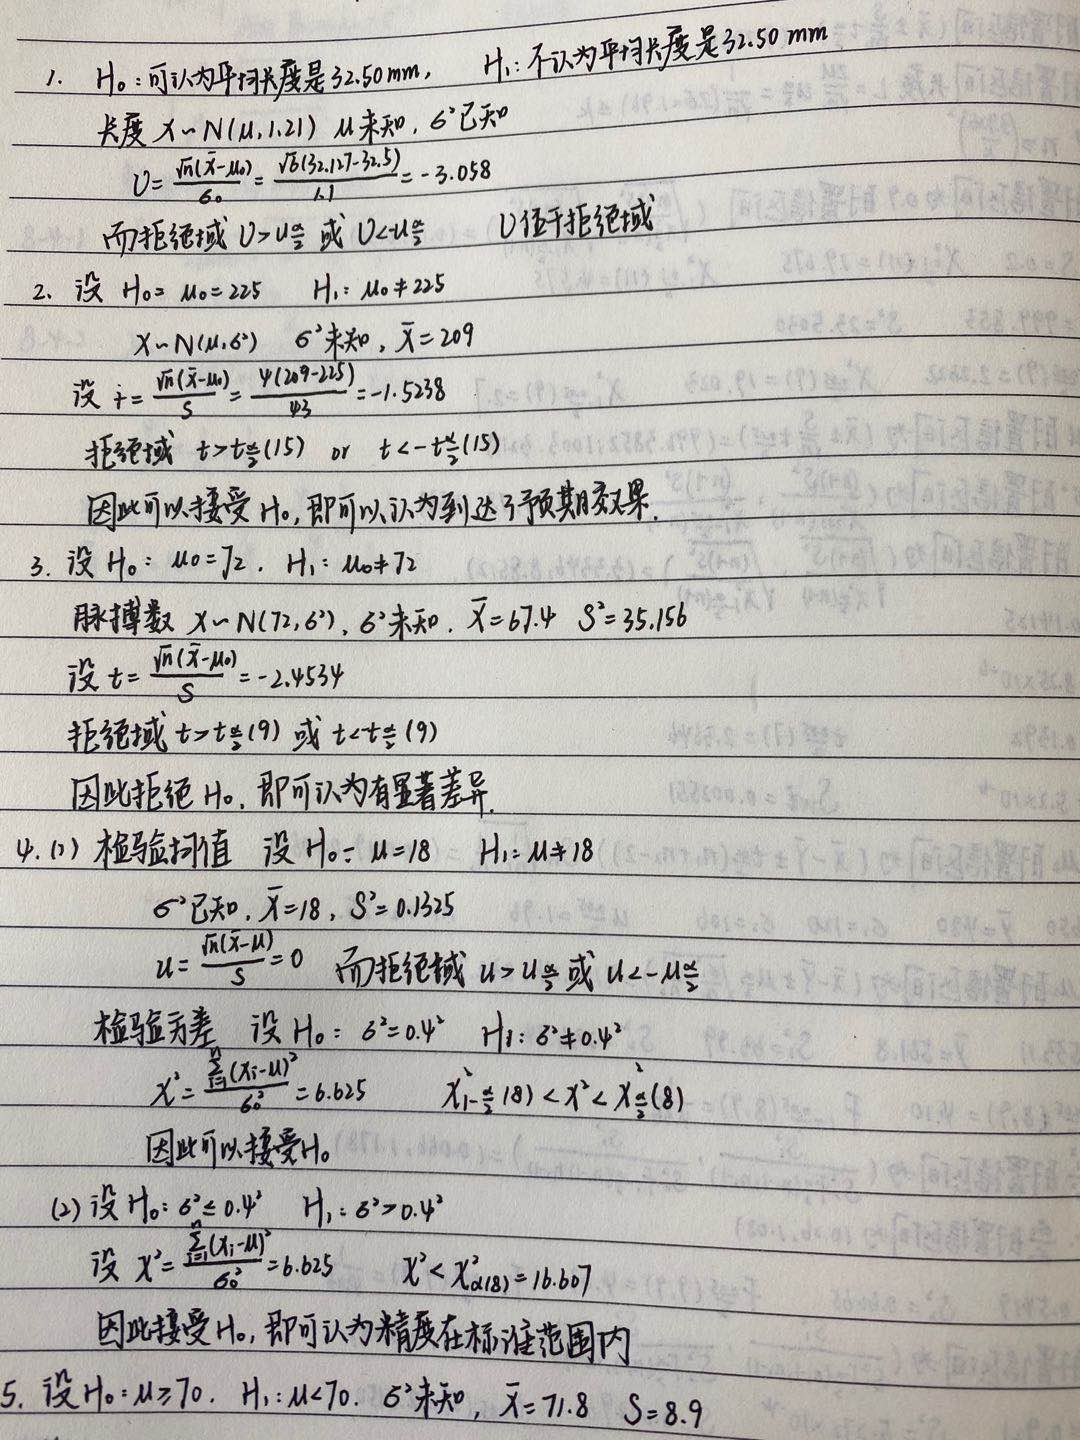 1. H₀: 可认为平均长度是32.50mm, H₁: 不认为平均长度是32.50 mm
长度 X~N(μ,1.21) μ未知, σ²已知
U = √n(x̄-μ₀)/σ₀ = √6(32.127-32.5)/1.1 = -3.058
而拒绝域 U>u_{α/2} 或 U<-u_{α/2} U位于拒绝域
2. 设 H₀= μ₀=225 H₁: μ₀≠225
X~N(μ,σ²) σ²未知, x̄=209
设 t = √n(x̄-μ₀)/S = 4(209-225)/43 = -1.5238
拒绝域 t>t_{α/2}(15) or t<-t_{α/2}(15)
因此可以接受H₀, 即可以认为到达了预期效果.
3. 设 H₀: μ₀=72. H₁: μ₀≠72
脉搏数 X~N(72,σ²), σ²未知. x̄=67.4 S²=35.156
设 t = √n(x̄-μ₀)/S = -2.4534
拒绝域 t>t_{α/2}(9) 或 t<t_{α/2}(9)
因此拒绝H₀, 即可认为有显著差异.
4. (1) 检验均值 设 H₀: μ=18 H₁: μ≠18
σ²已知, x̄=18, S²=0.1325
u = √n(x̄-μ)/S = 0 而拒绝域 u>u_{α/2} 或 u<-u_{α/2}
检验方差 设 H₀: σ²=0.4² H₁: σ²≠0.4²
χ² = Σ_{i=1}^{n}(xᵢ-μ)²/σ₀² = 6.625 χ²_{1-α/2}(8) < χ² < χ²_{α/2}(8)
因此可以接受H₀
(2) 设 H₀: σ²≤0.4² H₁: σ²>0.4²
设 χ² = Σ_{i=1}^{n}(xᵢ-μ)²/σ₀² = 6.625 χ² < χ²_{α(8)} = 16.607
因此接受H₀, 即可认为精度在标准范围内
5. 设 H₀: μ≥70. H₁: μ<70. σ²未知, x̄=71.8 S=8.9